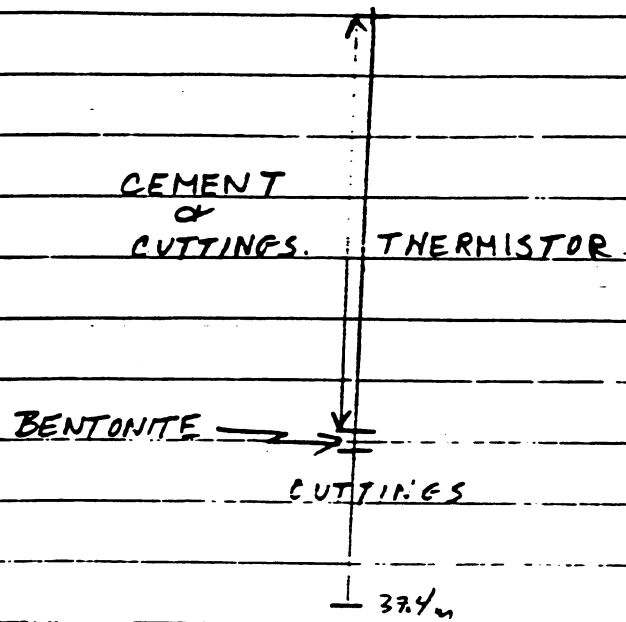 CEMENT
or
CUTTINGS. THERMISTOR.
BENTONITE
CUTTINGS
37.4m